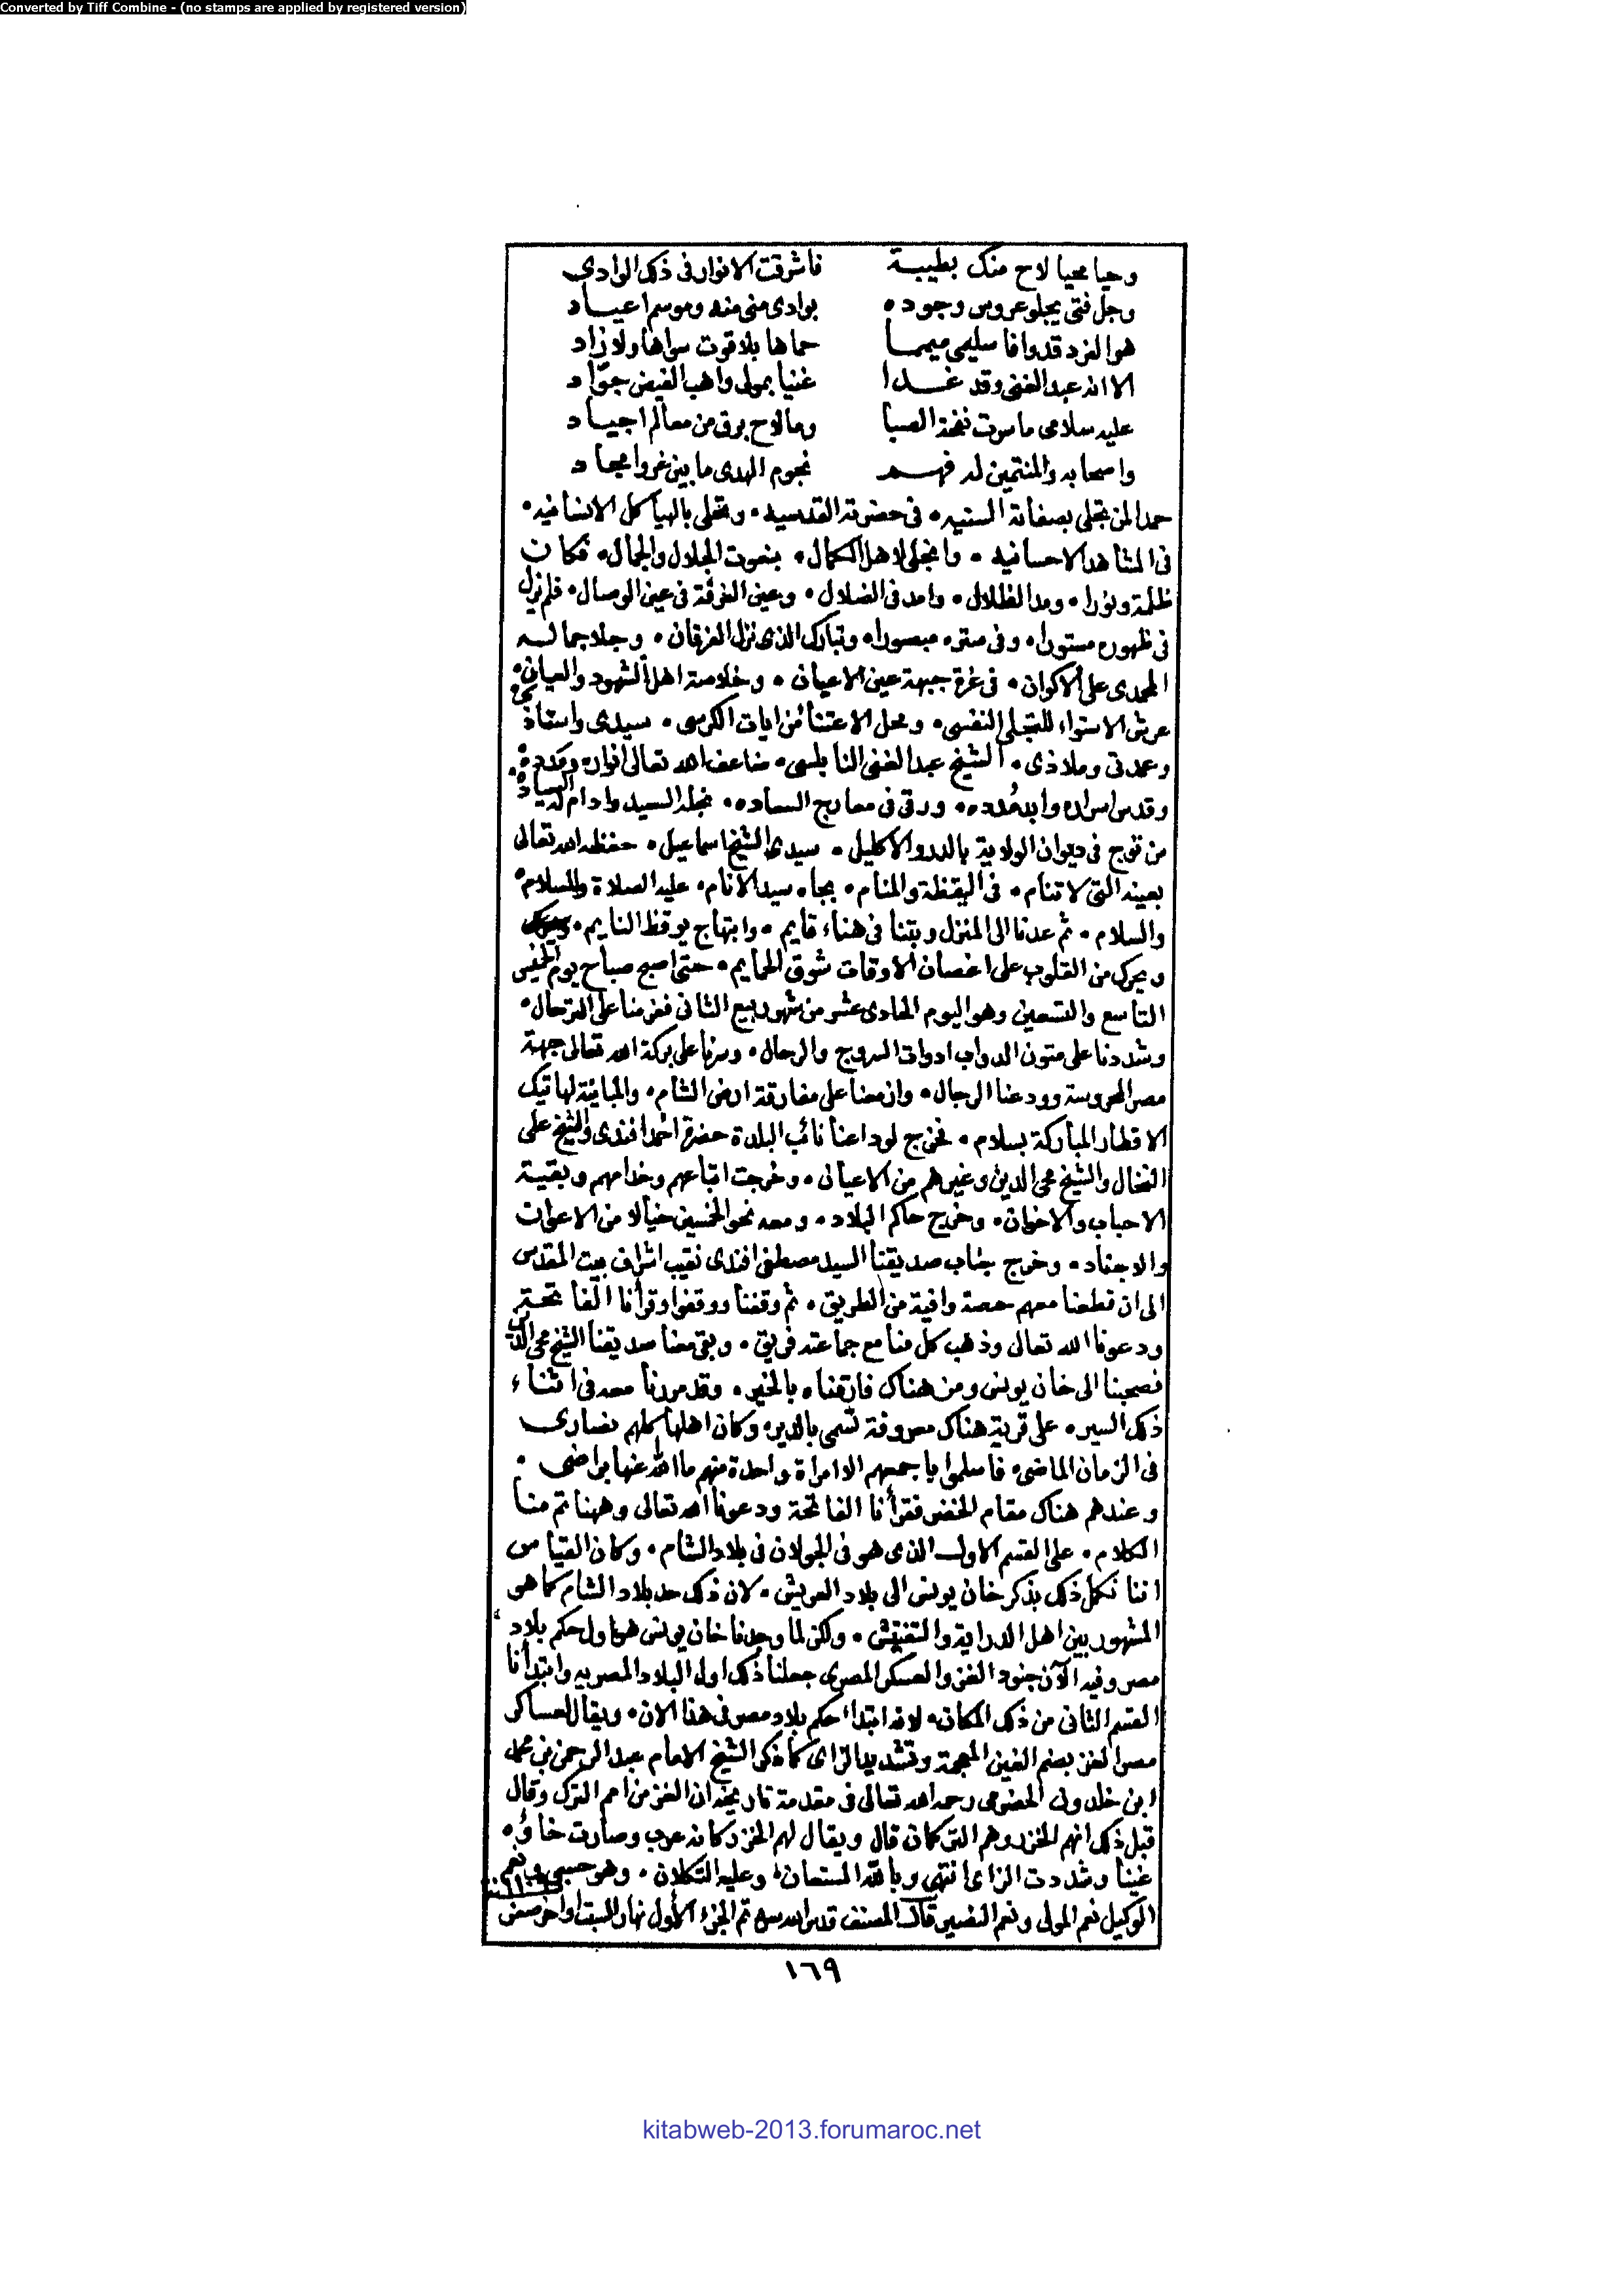 Converted by Tiff Combine - (no stamps are applied by registered version)
وحيا محيا لاح منك بطيبة فاشرقت الانوار فى ذلك الوادى
وجل فتى يجلو عروس وجوده بوادى منى منه وموسم اعياد
هو الفرد قد وافا سليمى ميمما حماها بلا قوت سواها ولا زاد
الا انه عبد الغنى وقد غدا غنيا بمولى واهب الفيض جوّاد
عليه سلامى ما سرت نفحة الصبا وما لاح برق من معالم اجياد
واصحابه والمنتمين له فهم نجوم الهدى ما بين غور وامجاد
حمدا لمن تجلى بصفاته السنيه • فى حضرته القدسيه • وتحلى بالهياكل الانسانيه •
فى المشاهد الاحسانيه • وانجلى لاهل الكمال • بنعوت الجلال والجمال • فكان
ظلمة ونورا • ومد الظلال • وامد فى الضلال • وعين الفرقة فى عين الوصال • فلم يزل
فى ظهوره مستورا • وفى ستره مبصورا • وتبارك الذى نزل الفرقان • وجلا جماله
المحمدى على الاكوان • فى غرة جبهة عين الاعيان • وخلاصة اهل الشهود والعيان •
عرش الاستواء للتجلى النفسى • ومحل الاعتنا من ايات الكرسى • سيدى واستاذى
وعمدتى وملاذى • الشيخ عبد الغنى النابلسى • ضاعف الله تعالى انواره ومدده •
وقدس اسراره وابد مُدده • ورقى فى معارج السعاده • نجله السعيد وادام له السياده
من توج فى ديوان الولاية بالدر والاكليل • سيدى الشيخ اسماعيل • حفظه الله تعالى
بعينه التى لا تنام • فى اليقظة والمنام • بجاه سيد الانام • عليه الصلاة والسلام •
والسلام • ثم عدنا الى المنزل وبتنا فى هناء قايم • وابتهاج يوقظ النايم •
ويحرك من القلوب على اغصان الاوقات شوق الحمايم • حتى اصبح صباح يوم الخميس
التاسع والتسعين وهو اليوم الحادى عشر من شهر ربيع الثانى فعزمنا على الترحال •
وشددنا على متون الدواب ادوات السروج والرحال • وسرنا على بركة الله تعالى جهة
مصر المحروسة وودعنا الرجال • وازمعنا على مفارقة ارض الشام • والمباينة لهاتيك
الاقطار المباركة بسلام • فخرج لوداعنا نائب البلدة حضرة احمد افندى والشيخ على
النخال والشيخ محى الدين وغيرهم من الاعيان • وخرجت اتباعهم وخدامهم وبقية
الاحباب والاخوان • وخرج حاكم البلاد • ومعه نحو الخمسين خيالا من الاعوان
والاجناد • وخرج جناب صديقنا السيد مصطفى افندى نقيب اشراف بيت المقدس
الى ان قطعنا معهم حصة وافية من الطريق • ثم وقفنا ووقفوا وقرأنا الفاتحة
ودعونا الله تعالى وذهب كل منا مع جماعته فريق • وبقى معنا صديقنا الشيخ محى الدين
فصحبنا الى خان يونس ومن هناك فارقناه بالخير • وقد مررنا معه فى اثناء
ذلك السير • على قرية هناك معروفة تسمى بالدير • وكان اهلها كلهم نصارى
فى الزمان الماضى • فاسلموا باجمعهم الا امراة واحدة منهم ما الله عنها براضى •
وعندهم هناك مقام الخضر فقرأنا الفاتحة ودعونا الله تعالى وههنا تم منا
الكلام • على القسم الاول الذى هو فى الجولان فى بلاد الشام • وكان القياس
اننا نكمل ذلك بذكر خان يونس الى بلاد العريش • لان ذلك حد بلاد الشام كما هو
المشهور بين اهل الدراية والتفتيش • ولكن لما وجدنا خان يونس هو اول حكم بلاد
مصر وفيه الآن جنود الغز والعسكر المصرى جعلنا ذلك اول البلاد المصريه وابتدأنا
القسم الثانى من ذلك المكان • لانه ابتداء حكم بلاد مصر فى هذا الان • ويقال لعساكر
مصر الغز بضم الغين المعجمة وتشديد الزاى كما ذكر الشيخ الامام عبد الرحمن بن محمد
ابن خلدون الحضرمى رحمه الله تعالى فى مقدمة تاريخه ان الغز من امم الترك وقال
قبل ذلك انهم الخزر وهم التركمان قال ويقال لهم الخزر كانه عرب وصارت خاؤه
غينا وشددت الزاى انتهى وبالله المستعان • وعليه التكلان • وهو حسبى ونعم
الوكيل نعم المولى ونعم النصير قال المصنف قدس الله سره تم الجزء الاول نهار السبت اواخر صفر
١٦٩
kitabweb-2013.forumaroc.net